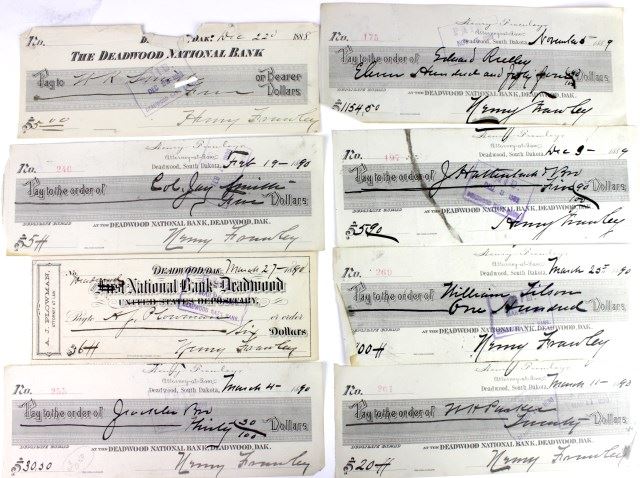 No. Dak. Dec 22d 1888
THE DEADWOOD NATIONAL BANK
Pay to W. R. or Bearer
Five Dollars
$5.00 Henry Frawley
Henry Frawley
No. 246 Attorney-at-Law
Deadwood, South Dakota, Feb 19 - 1890
Pay to the order of Col. Jay Smith
Five Dollars.
AT THE DEADWOOD NATIONAL BANK, DEADWOOD, DAK.
$5 Henry Frawley
A. J. PLOWMAN,
DEADWOOD, DAK. March 27 - 1890
First National Bank of Deadwood
UNITED STATES DEPOSITARY,
A. J. Plowman or order
Six Dollars
$6 Henry Frawley
Henry Frawley
No. 255 Attorney-at-Law
Deadwood, South Dakota, March 4 - 1890
Pay to the order of Bro
Thirty 30/100 Dollars.
AT THE DEADWOOD NATIONAL BANK, DEADWOOD, DAK.
$30.30 Henry Frawley
Henry Frawley
No. 175 Attorney-at-Law
Deadwood, South Dakota, November 5 1889
Pay to the order of Edward
Eleven Hundred and fifty four 50/100 Dollars.
AT THE DEADWOOD NATIONAL BANK, DEADWOOD, DAK.
$1154.50 Henry Frawley
Henry Frawley
No. 197 Attorney-at-Law
Deadwood, South Dakota, Dec 9 - 1889
Pay to the order of J. Hattenbach & Bro
Five 90/100 Dollars.
AT THE DEADWOOD NATIONAL BANK, DEADWOOD, DAK.
$5.90 Henry Frawley
Henry Frawley
No. 269 Attorney-at-Law
Deadwood, South Dakota, March 25 1890
Pay to the order of William
One Hundred Dollars.
AT THE DEADWOOD NATIONAL BANK, DEADWOOD, DAK.
$100 Henry Frawley
No. 261 Attorney-at-Law
Deadwood, South Dakota, March 11 - 1890
Pay to the order of W. H. Parker
Twenty Dollars.
AT THE DEADWOOD NATIONAL BANK, DEADWOOD, DAK.
$20 Henry Frawley